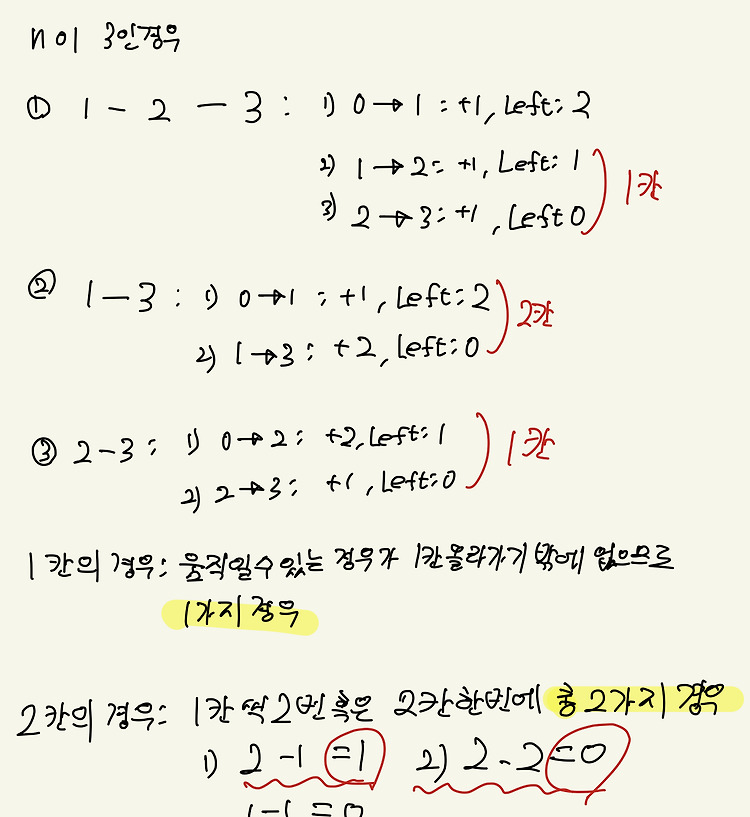 n이 3인경우
① 1 - 2 - 3 : 1) 0→1 : +1, Left: 2
2) 1→2: +1, Left: 1
3) 2→3: +1, Left 0
1칸
② 1-3 : 1) 0→1 : +1, Left: 2
2) 1→3: +2, Left: 0
2칸
③ 2-3: 1) 0→2: +2, Left: 1
2) 2→3: +1, Left: 0
1칸
1칸의 경우: 움직일수 있는 경우가 1칸올라가기 밖에 없으므로
1가지 경우
2칸의 경우: 1칸 씩 2번 혹은 2칸한번에 총 2가지 경우
1) 2-1 =1 2) 2-2=0
1-1=0